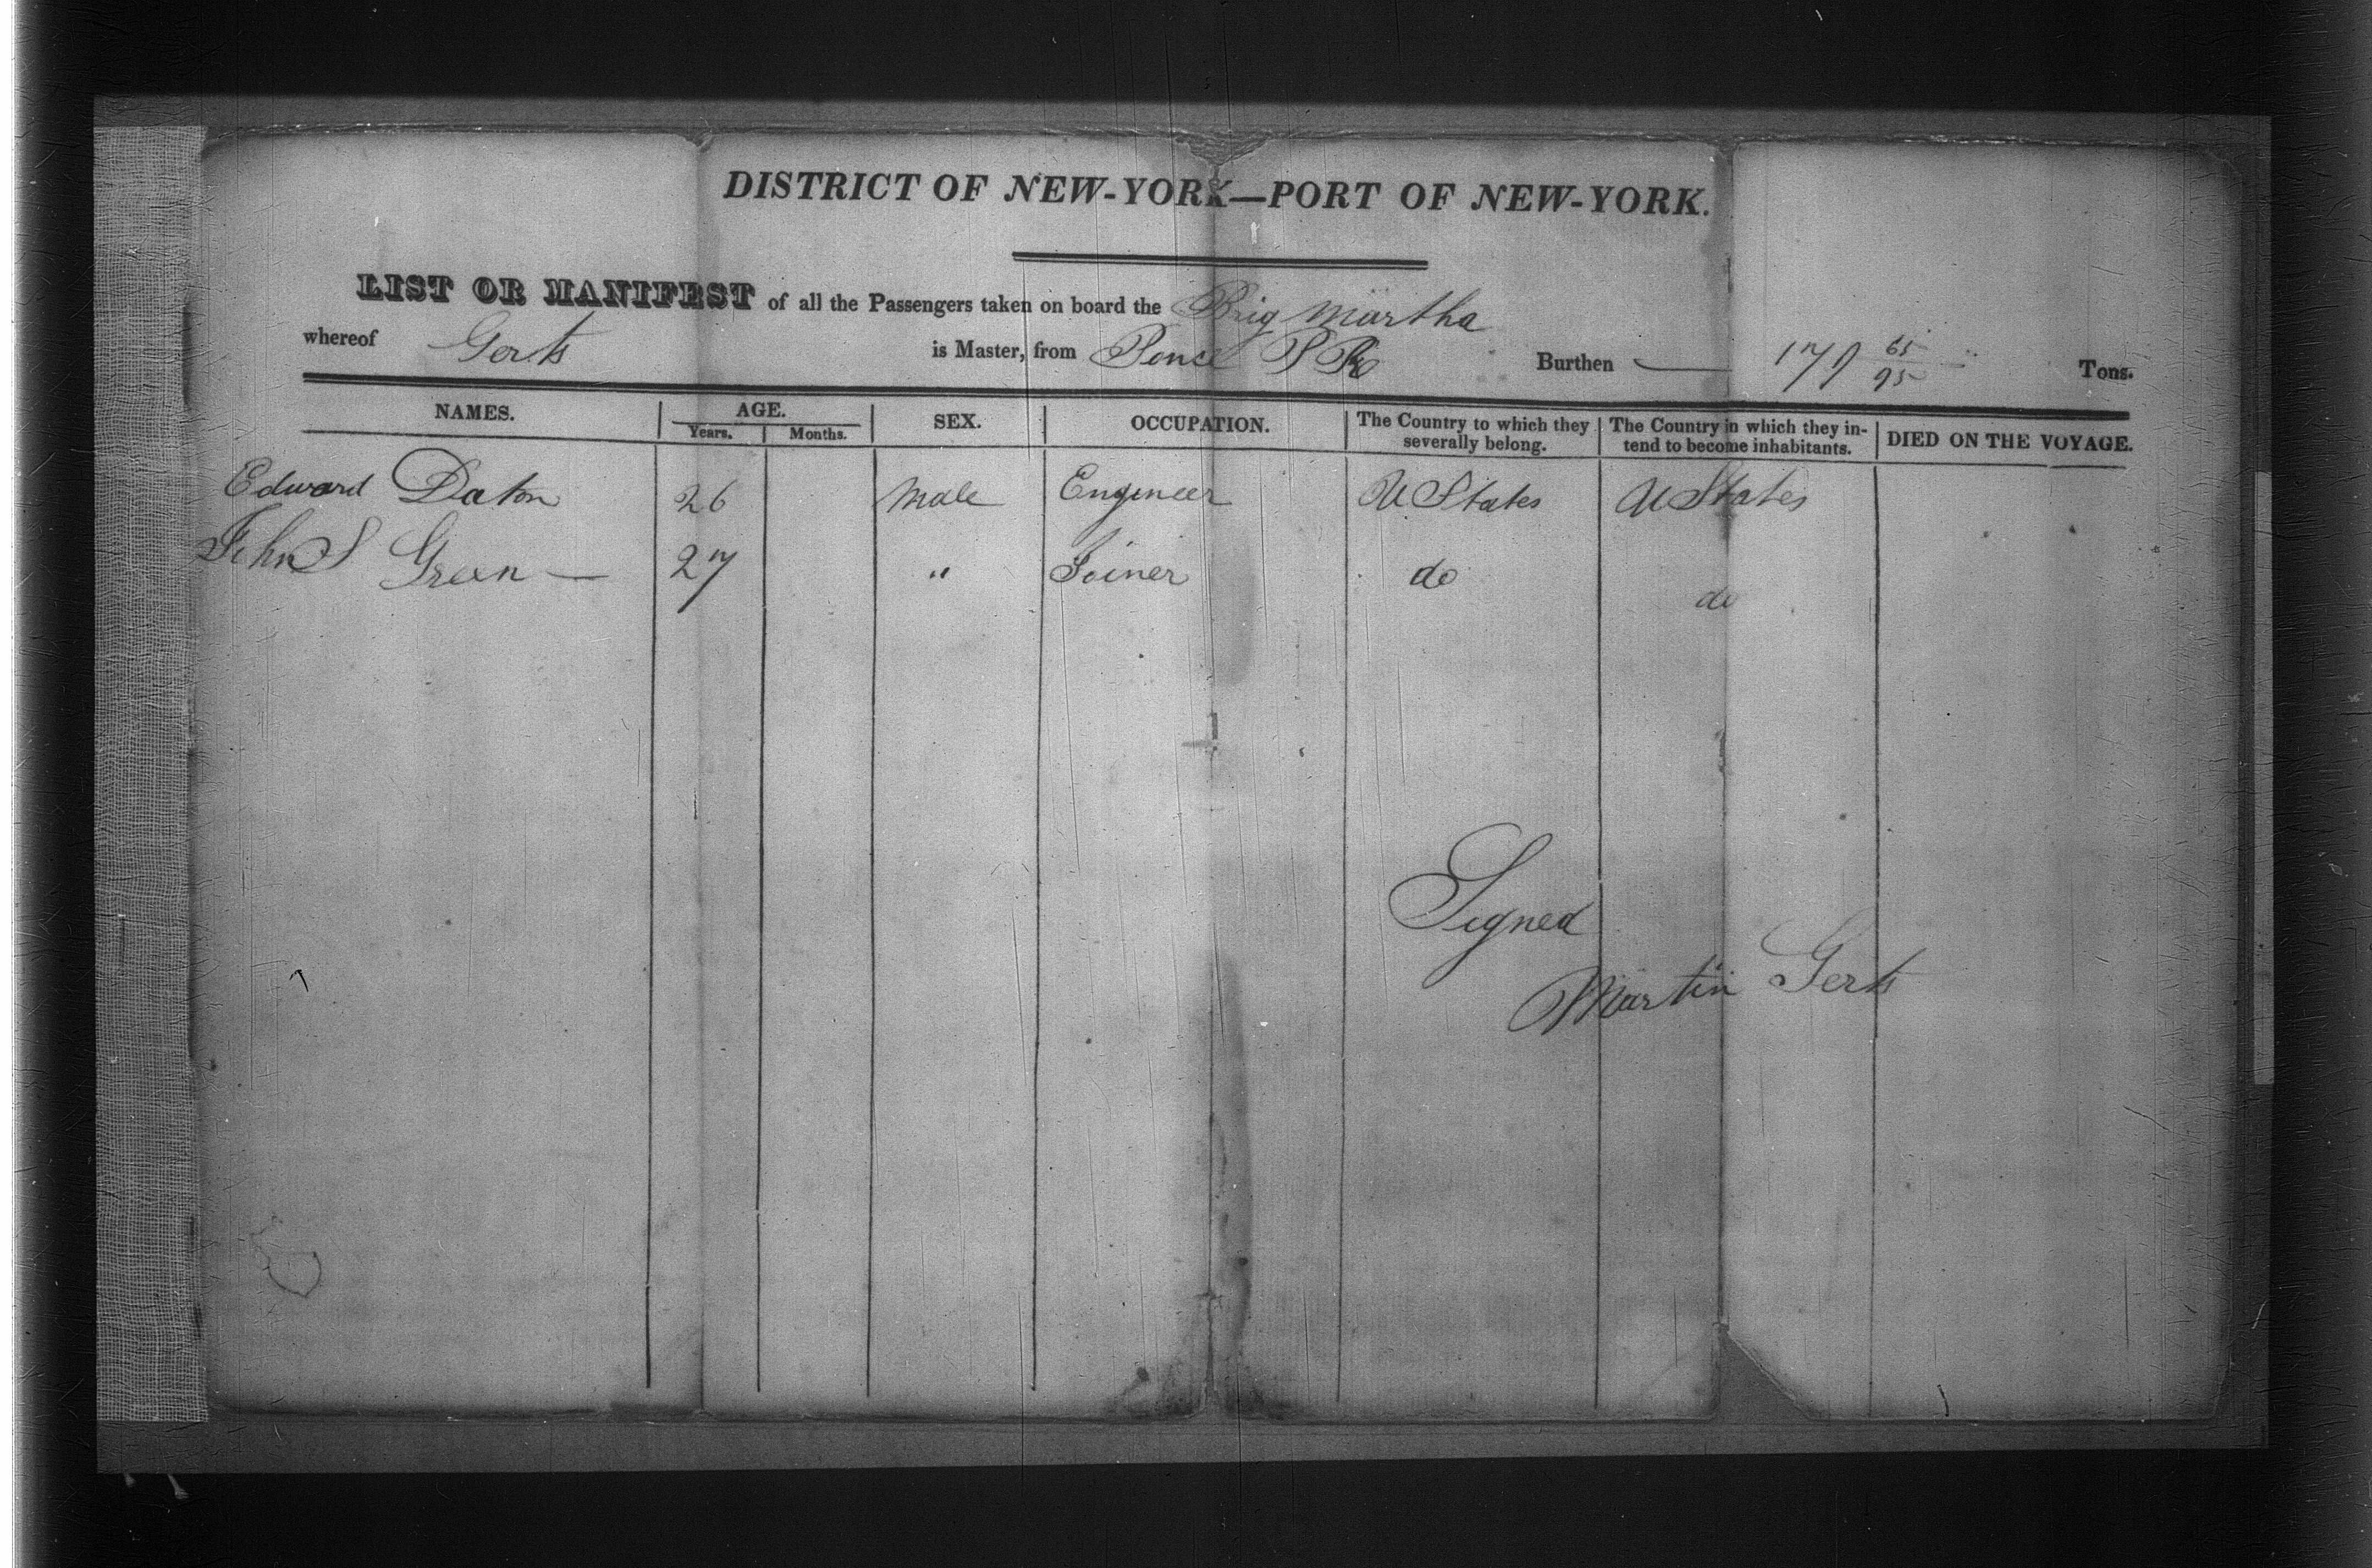 DISTRICT OF NEW-YORK—PORT OF NEW-YORK.
LIST OR MANIFEST of all the Passengers taken on board the Brig Martha
whereof Gerts is Master, from Ponce P R Burthen 177 65/95 Tons.
NAMES. AGE. SEX. OCCUPATION. The Country to which they severally belong. The Country in which they intend to become inhabitants. DIED ON THE VOYAGE.
Years. Months.
Edward Daton 26 Male Engineer U States U States
John S Green — 27 " Joiner do do
Signed
Martin Gerts